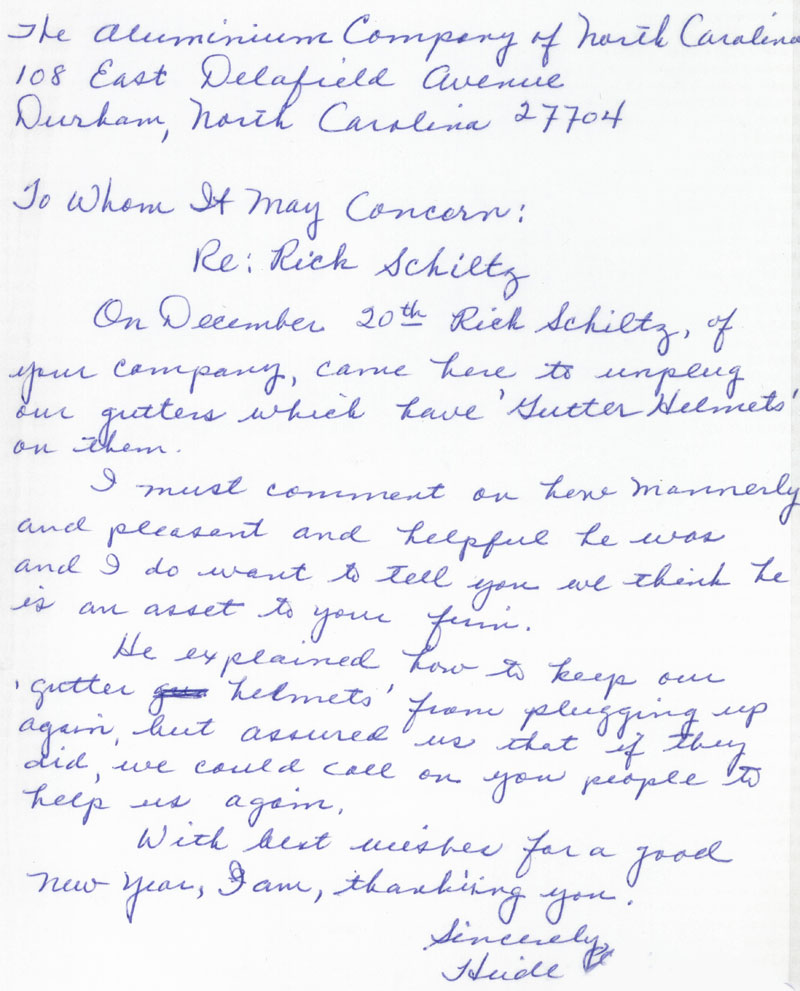 The Aluminium Company of North Carolina
108 East Delafield Avenue
Durham, North Carolina 27704
To Whom It May Concern:
Re: Rick Schiltz
On December 20th Rick Schiltz, of
your company, came here to unplug
our gutters which have 'Gutter Helmets'
on them.
I must comment on how mannerly
and pleasant and helpful he was
and I do want to tell you we think he
is an asset to your firm.
He explained how to keep our
'gutter helmets' from plugging up
again, but assured us that if they
did, we could call on you people to
help us again.
With best wishes for a good
New Year, I am, thanking you.
Sincerely,